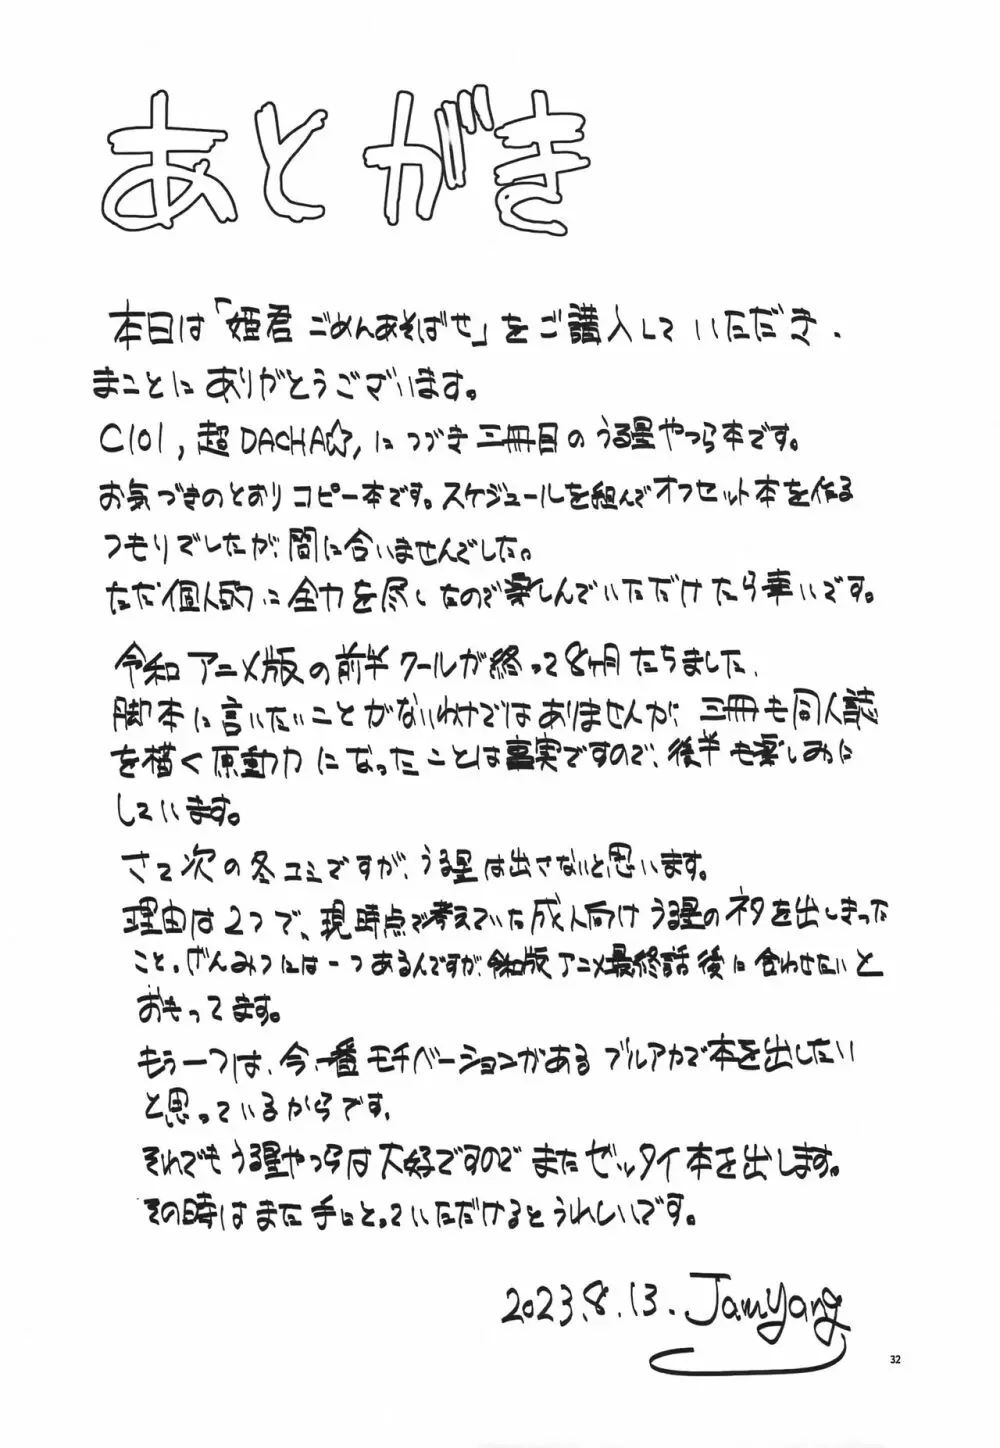 あとがき
本日は「姫君ごめんあそばせ」をご購入していただき、
まことにありがとうございます。
C101, 超DACHA☆, につづき三冊目のうる星やつら本です。
お気づきのとおりコピー本です。スケジュールを組んでオフセット本を作る
つもりでしたが、間に合いませんでした。
ただ個人的に全力を尽くしたので楽しんでいただけたら幸いです。
令和アニメ版の前半クールが終って8ヶ月たちました、
脚本に言いたいことがないわけではありませんが、三冊も同人誌
を描く原動力になったことは事実ですので、後半も楽しみに
しています。
さて次の冬コミですが、うる星は出さないと思います。
理由は2つで、現時点で考えていた成人向けうる星のネタを出しきった
こと。げんみつには一つあるんですが、令和版アニメ最終話後に合わせたいと
おもってます。
もう一つは、今一番モチベーションがあるブルアカで本を出したい
と思っているからです。
それでもうる星やつらは大好ですのでまたゼッタイ本を出します。
その時はまた手にとっていただけるとうれしいです。
2023.8.13. Jamyang
32